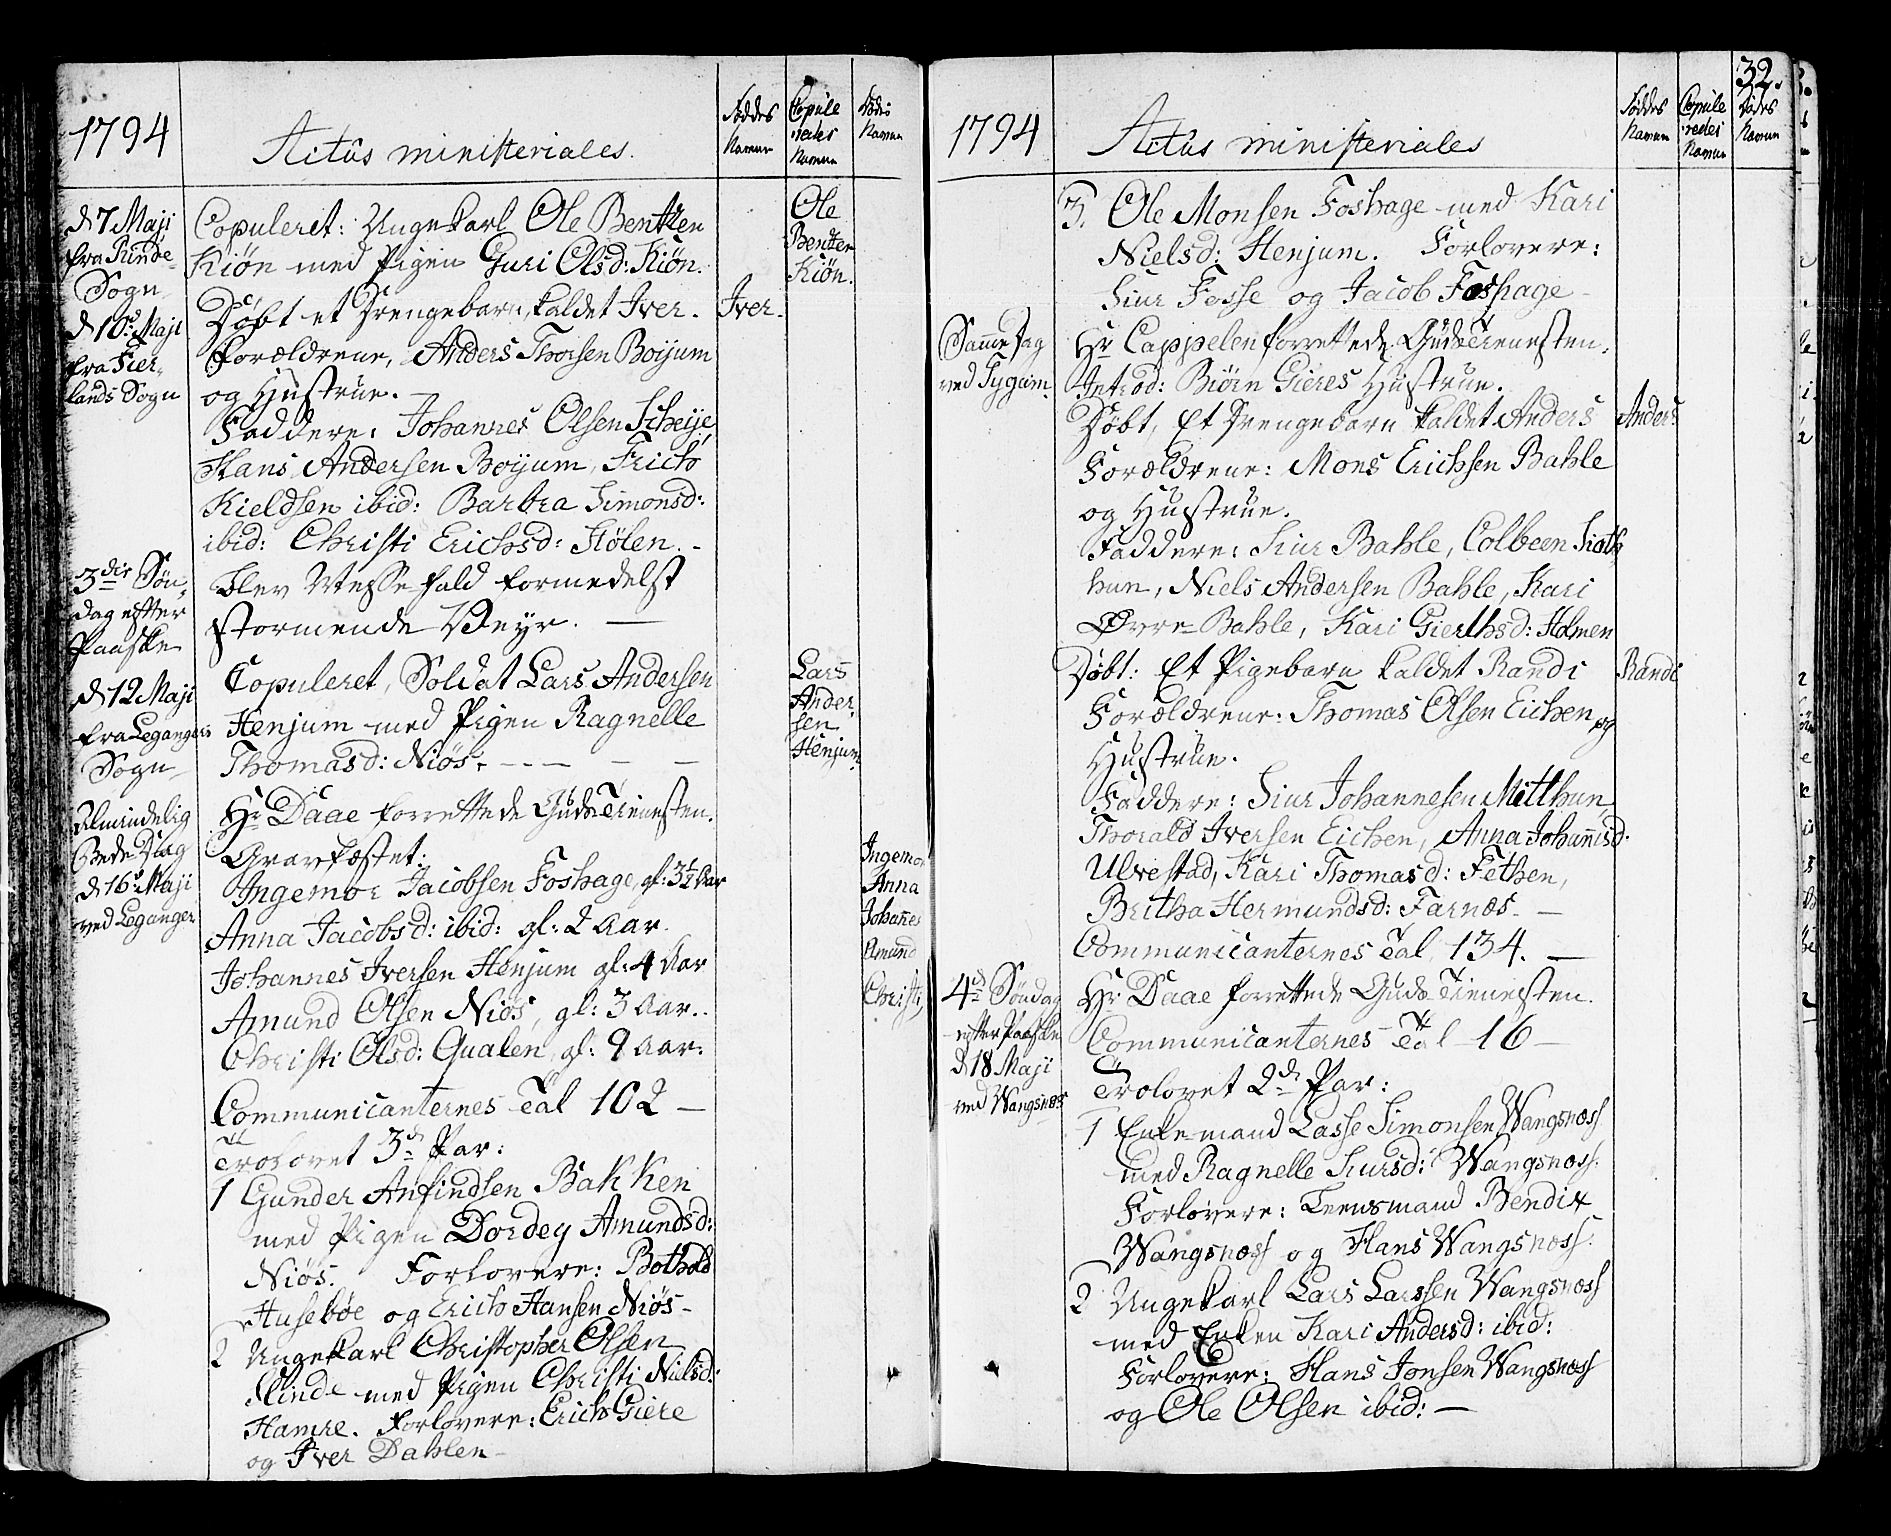 1794
Actûs ministeriales.
Føddes Navne
Copule redes Navne
Dødes Navne
d 7 Maji
fra Runde-
Sogn
Copuleret: Ungekarl Ole Bentzen
Kiøn med Pigen Guri Olsd: Kiøn.
Ole
Bentzen
Kiøn.
d 10de Maji
fra Fier-
lands Sogn
Døbt et Drengebarn, kaldet Iver.
Iver.
Forældrene, Anders Thorsen Boijum
og Hustrue.
Faddere: Johannes Olsen Scheije,
Hans Andersen Boijum, Erich
Kieldsen ibid: Barbra Simonsd:
ibid: Christi Erichsd: Stølen. -
3die Søn-
dag efter
Paaske
blev Messefald formedelst
stormende Veyr. —
d 12 Maji
fra Leganger
Sogn
Copuleret, Soldat Lars Andersen
Henjum med Pigen Ragnelle
Thomasd: Niøs. - - - - -
Lars
Ander-
sen
Henjum.
Almindelig
Bede Dag
d 16de Maji
ved Leganger
Hr Daae forrettede Guds Tienesten.
Gravfæstet:
Ingemor Jacobsen Foshage, gl: 3½ Aar
Anna Jacobsd: ibid: gl: 2 Aar.
Johannes Iversen Henjum gl: 4 Aar
Amund Olsen Niøs, gl: 3 Aar.
Christi Olsd: Qualen, gl: 9 Aar.
Ingemor
Anna
Johañes
Amund
Christi,
Communicanternes Tal 102 —
Trolovet 3de Par:
1 Gunder Anfindsen Bakken
med Pigen Dordey Amundsd:
Niøs. Forlovere: Bothold
Husebøe og Erich Hansen Niøs-
2 Ungekarl Christopher Olsen
Slinde med Pigen Christi Nielsd:
Hamre. Forlovere: Erich Giere
og Iver Dahlen-
32.
1794
Actûs ministeriales
Føddes Navne
Copule redes Navne
Dødes Navne
3. Ole Monsen Foshage med Kari
Nielsd: Henjum. Forlovere:
Siur Fosse og Jacob Foshage-
Samme Dag
ved Tygum.
Hr Cappelen forrettede Guds Tienesten.
Introd: Biørn Gieres Hustrue.
Døbt, Et Drengebarn kaldet Anders
Anders.
Forældrene: Mons Erichsen Bahle
og Hustrue.
Faddere: Siur Bahle, Colbeen Sioth-
hun, Niels Andersen Bahle, Kari
Øvre-Bahle, Kari Gierthsd: Holmen
Døbt: Et Pigebarn kaldet Randi
Randi
Forældrene: Thomas Olsen Eichen og
Hustrue.
Faddere: Siur Johannesen Mitthun
Thorald Iversen Eichen, Anna Johañisd:
Ulvestad, Kari Thomasd: Fethen,
Britha Hermundsd: Farnæs. —
Communicanternes Tal 134. —
4de Søndag
efter Paaske
d 18 Maji
ved Wangsnæs
Hr Daae forrettede Guds Tienesten.
Communicanternes Tal 16 —
Trolovet 2de Par:
1 Enkemand Lasse Simonsen Wangsnæss
med Ragnelle Siursd: Wangsnæss.
Forlovere: Leensmand Bendix
Wangsnæss og Hans Wangsnæss.
2 Ungekarl Lars Larssen Wangsnæss
med Enken Kari Andersd: ibid:
Forlovere: Hans Jonsen Wangsnæss
og Ole Olsen ibid: —